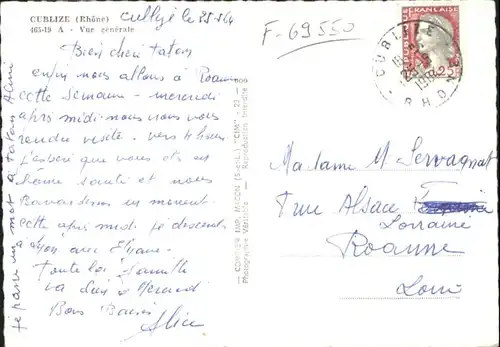 CUBLIZE (Rhône)
465-19 A - Vue générale
Cublize le 25-5-64
F-69550
FRANÇAISE
CUBLIZE
RHONE
Bien chers tatan
enfin nous allons à Roanne
cette semaine - mercredi
après midi nous nous vous
rendre visite - vers 4 heures
J'espère que vous êtes en
bonne santé et nous
Bavarderons un moment
cette après midi je descends
Lyon avec Eliane
toute la famille
va bien à
Bons Baisers
Alice
je passe un mot à tatan Aline
COMBIER IMP. MACON (S.-&-L.) "CIM"
Photographie Véritable - Reproduction Interdite
Madame M Servagnat
7 rue Alsace
Lorraine
Roanne
Loire